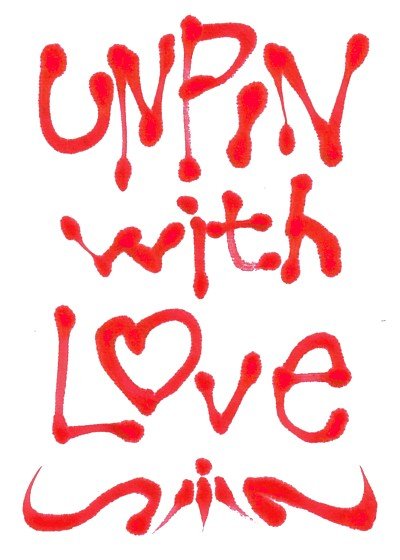 UNPiN
with
Love